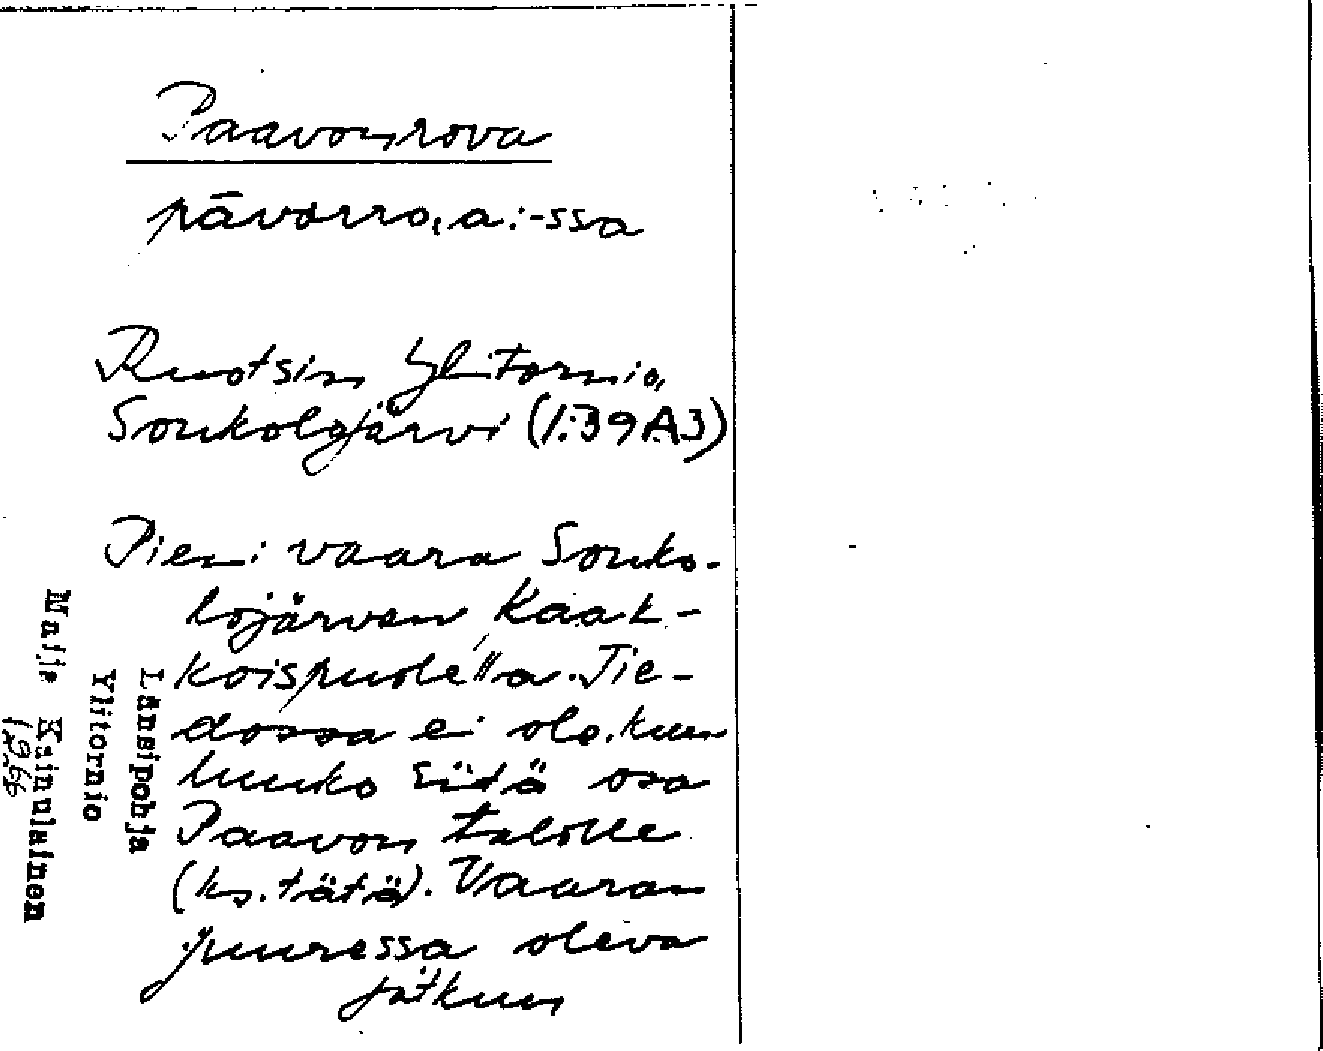 Paavonrova
pāvonro, a: -ssa
Ruotsin Ylitornio,
Soukolojärvi (1:39 A3)
Pieni vaara Souko-
lojärven kaak-
koispuolella. Tie-
dossa ei ole, kuu
luuko siitä osa
Paavon talolle
(ks. tätä). Vaaran
juuressa oleva
jatkuu
Länsipohja
Ylitornio
Maija Kainulainen
1966